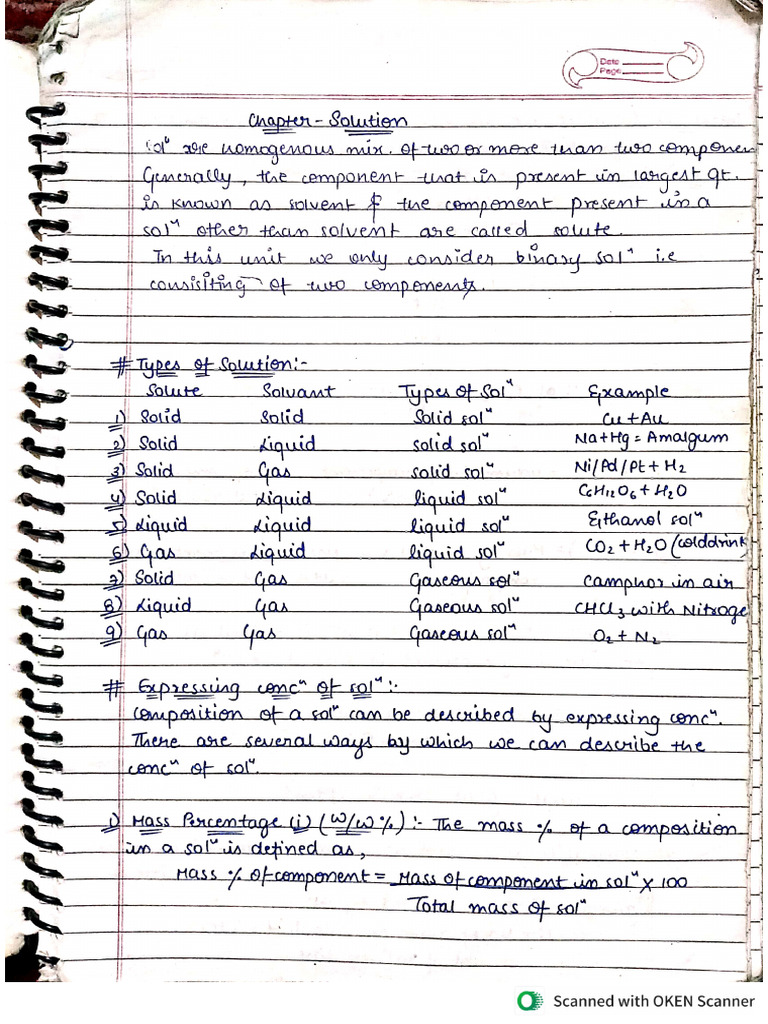 Date
Page
Chapter - Solution
solⁿ are homogenous mix. of two or more than two componen
Generally, the component that is present in largest qt.
is known as solvent & the component present in a
solⁿ other than solvent are called solute.
In this unit we only consider binary solⁿ i.e
consisiting of two components.
# Types of Solution:-
Solute Solvant Types of Solⁿ Example
1) Solid Solid Solid solⁿ Cu + Au
2) Solid Liquid solid solⁿ Na+Hg = Amalgum
3) Solid Gas solid solⁿ Ni/Pd/Pt + H₂
4) Solid Liquid liquid solⁿ C₆H₁₂O₆ + H₂O
5) Liquid Liquid liquid solⁿ Ethanol solⁿ
6) Gas Liquid liquid solⁿ CO₂ + H₂O (colddrink
7) Solid Gas Gaseous solⁿ camphor in air
8) Liquid Gas Gaseous solⁿ CHCl₃ with Nitroge
9) Gas Gas Gaseous solⁿ O₂ + N₂
# Expressing concⁿ of solⁿ:-
Composition of a solⁿ can be described by expressing concⁿ.
There are several ways by which we can describe the
concⁿ of solⁿ.
1) Mass Percentage (i) (w/w %) :- The mass % of a composition
in a solⁿ is defined as,
Mass % of component = Mass of component in solⁿ × 100
Total mass of solⁿ
Scanned with OKEN Scanner